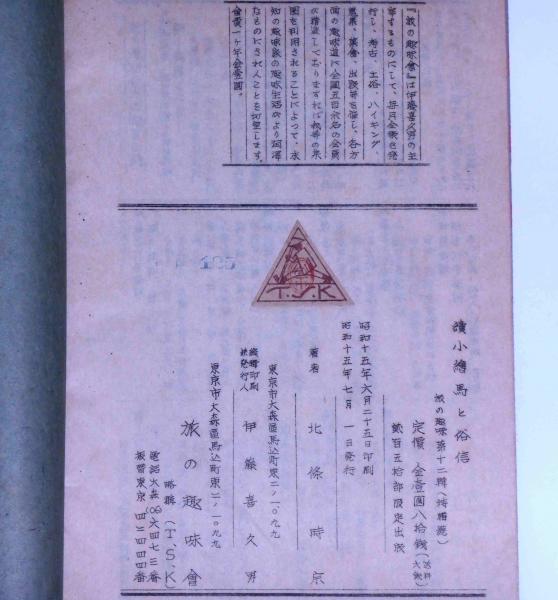 『旅の趣味會』は伊藤喜久男の主
宰するものにして、毎月会報を発
行し、考古、土俗、ハイキング、
蒐集、集會、出版等を催し、各方
面の趣味道に全國五百余名の会員
が精進しております
団を利用されることによって、未
知の趣味家の趣味生活がより潤澤
なものにされんことを切望します。
会費一ヶ年金壹圓。
185
T.S.K
續小繪馬と俗信
旅の趣味第十二輯
定價 金壹圓八拾銭(送料
貳百五拾部限定出版
昭和十五年六月二十五日印刷
昭和十五年七月一日発行
著者 北條時京
東京市大森區馬込町東二ノ一〇九九
編輯印刷
兼発行人 伊藤喜久男
東京市大森區馬込町東二ノ一〇九九
旅の趣味會
略称(T.S.K)
電話大森(06)六四七三番
振替東京 四三四四四番